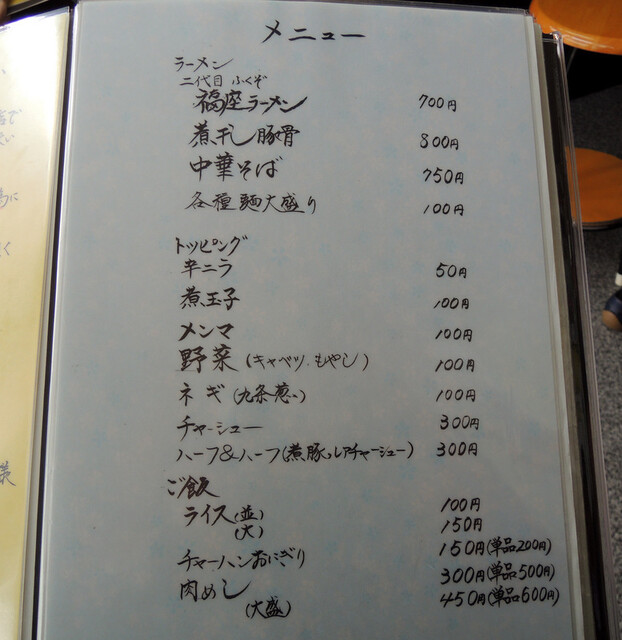 メニュー
ラーメン
二代目 ふくぞ
福座ラーメン 700円
煮干し豚骨 800円
中華そば 750円
各種麺大盛り 100円
トッピング
辛ニラ 50円
煮玉子 100円
メンマ 100円
野菜(キャベツ、もやし) 100円
ネギ(九条葱) 100円
チャーシュー 300円
ハーフ&ハーフ(煮豚、レアチャーシュー) 300円
ご飯
ライス(並) 100円
(大) 150円
チャーハンおにぎり 150円(単品200円)
肉めし 300円(単品500円)
(大盛) 450円(単品600円)